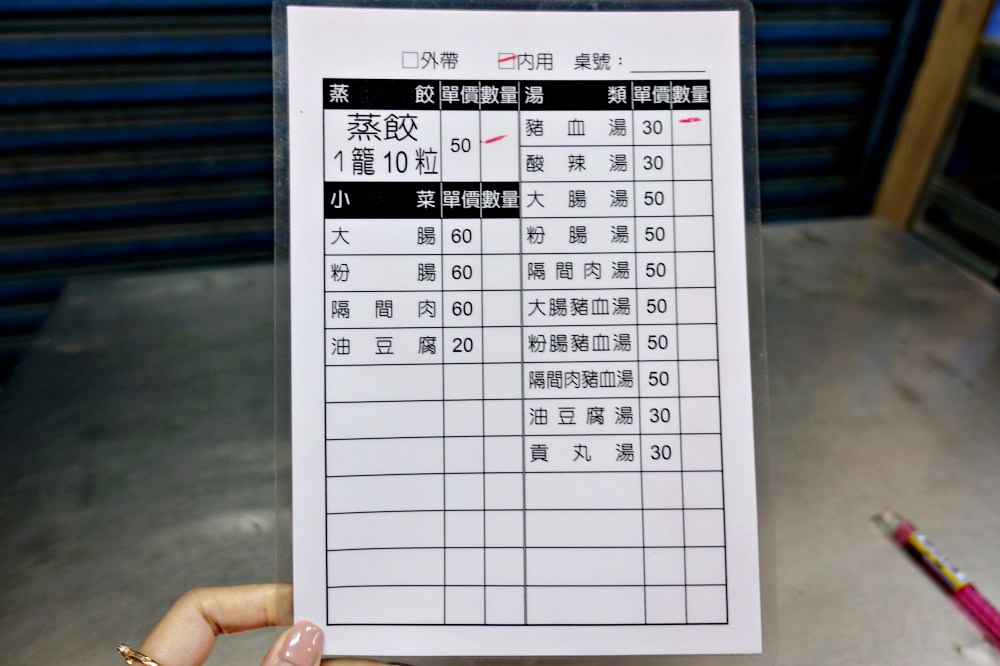 □外帶 ☑内用 桌號：______
蒸餃 單價 數量
蒸餃
1籠10粒 50
小菜 單價 數量
大腸 60
粉腸 60
隔間肉 60
油豆腐 20
湯類 單價 數量
豬血湯 30
酸辣湯 30
大腸湯 50
粉腸湯 50
隔間肉湯 50
大腸豬血湯 50
粉腸豬血湯 50
隔間肉豬血湯 50
油豆腐湯 30
貢丸湯 30